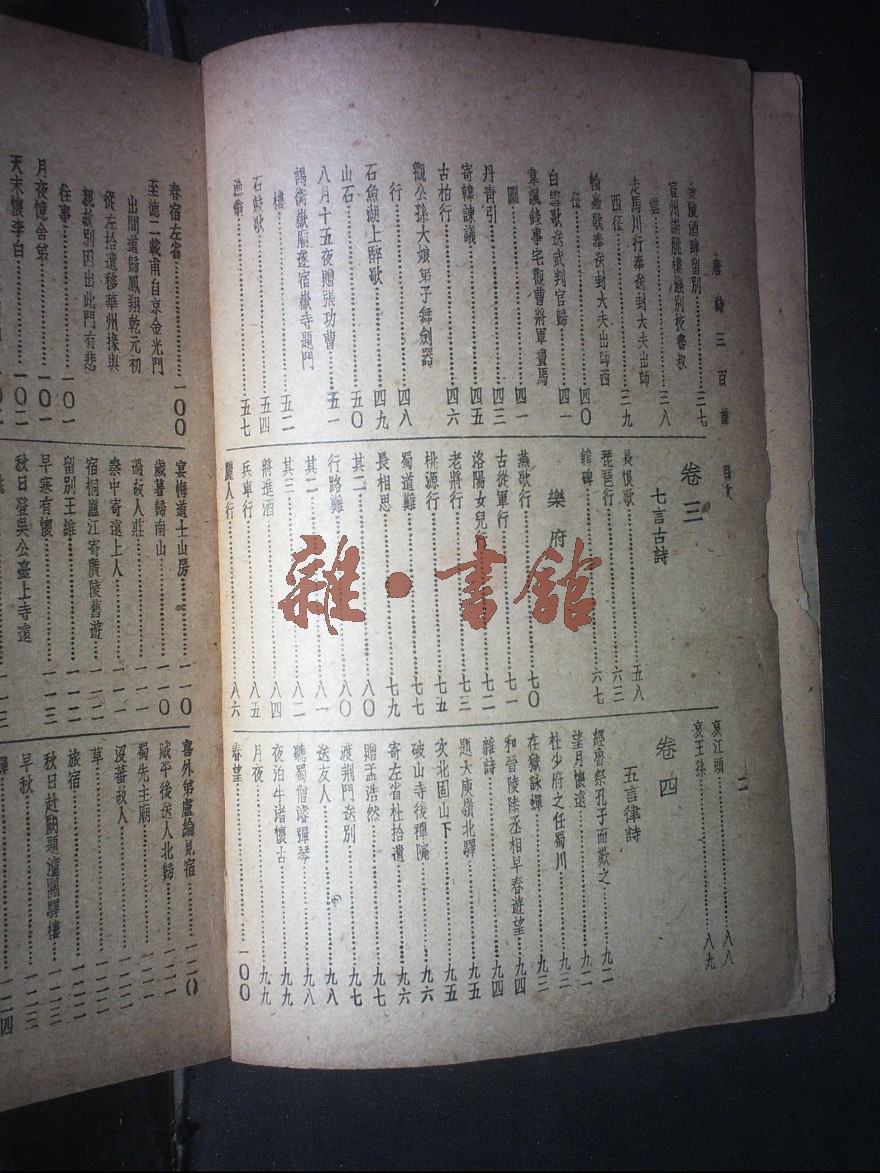 唐詩三百首 目次
二
金陵酒肆留別……三七
宣州謝脁樓餞別校書叔
雲……三八
走馬川行奉送封大夫出師
西征……三九
輪臺歌奉送封大夫出師西
征……四〇
白雪歌送武判官歸……四一
韋諷錄事宅觀曹將軍畫馬
圖……四一
丹青引……四三
寄韓諫議……四五
古柏行……四六
觀公孫大娘弟子舞劍器
行……四八
石魚湖上醉歌……四九
山石……五〇
八月十五夜贈張功曹……五一
謁衡嶽廟遂宿嶽寺題門
樓……五二
石鼓歌……五四
漁翁……五七
卷三
七言古詩
長恨歌……五八
琵琶行……六三
韓碑……六七
樂府
燕歌行……七〇
古從軍行……七一
洛陽女兒行……七二
老將行……七三
桃源行……七五
蜀道難……七七
長相思……七九
其二……八〇
行路難……八〇
其二……八一
其三……八二
將進酒……八四
兵車行……八五
麗人行……八六
哀江頭……八八
哀王孫……八九
卷四
五言律詩
經魯祭孔子而歎之……九二
望月懷遠……九二
杜少府之任蜀川……九三
在獄詠蟬……九三
和晉陵陸丞相早春遊望……九四
雜詩……九四
題大庾嶺北驛……九五
次北固山下……九五
破山寺後禪院……九六
寄左省杜拾遺……九六
贈孟浩然……九七
渡荆門送別……九七
送友人……九八
聽蜀僧濬彈琴……九八
夜泊牛渚懷古……九九
月夜……九九
春望……一〇〇
春宿左省……一〇〇
至德二載甫自京金光門
出間道歸鳳翔乾元初
從左拾遺移華州掾與
親故別因出此門有悲
往事……一〇一
月夜憶舍弟……一〇一
天末懷李白……一〇二
宴梅道士山房……一一〇
歲暮歸南山……一一〇
過故人莊……一一一
秦中寄遠上人……一一一
宿桐廬江寄廣陵舊遊……一一二
留別王維……一一二
早寒有懷……一一三
秋日登吳公臺上寺遠
喜外弟盧綸見宿……一二〇
賊平後送人北歸
蜀先主廟
沒蕃故人
草
旅宿
秋日赴闕題潼關驛樓
早秋
蟬
雜·書館